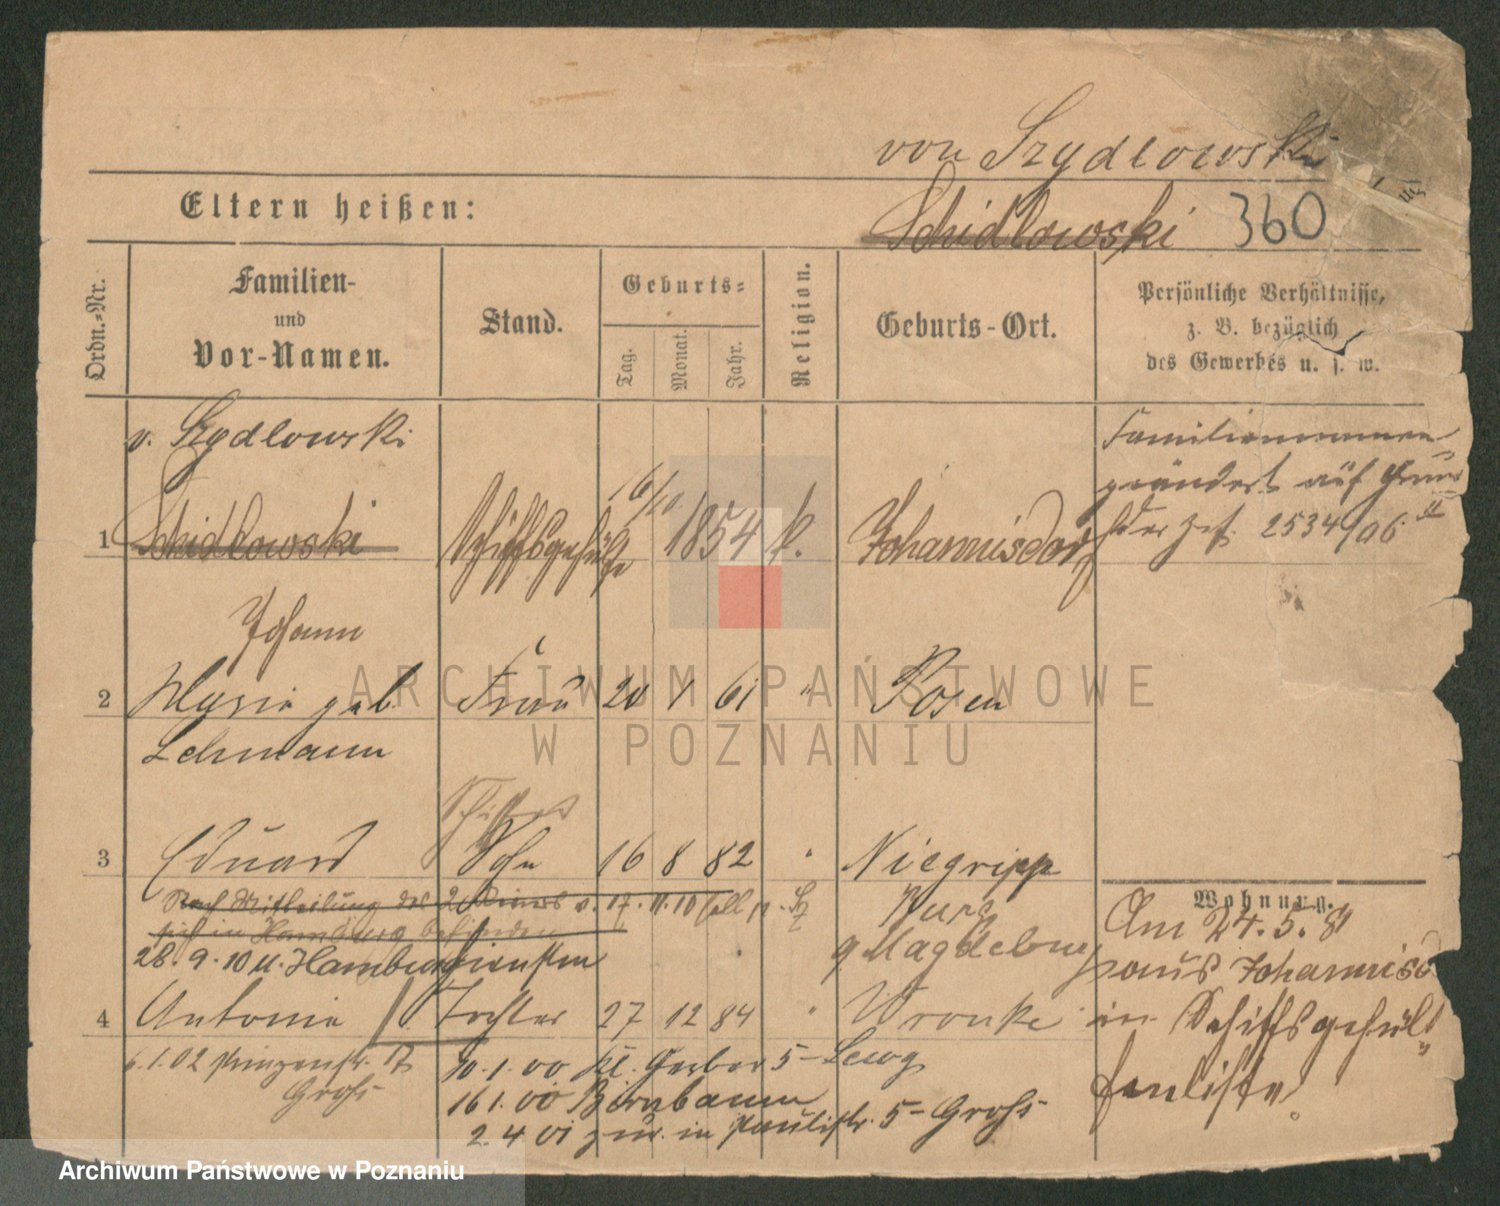 von Szydlowski
Eltern heißen:
Schidlowski 360
Ordn.-Nr.
Familien-
und
Vor-Namen.
Stand.
Geburts-
Tag.
Monat.
Jahr.
Religion.
Geburts-Ort.
Persönliche Verhältnisse,
z. B. bezüglich
des Gewerbes u. s. w.
v. Szydlowski
Familiennamen
geändert auf Grund
der 2534/06
1 Schidlowski Schiffsgehülfe 16/10 1854 k. Johannisdorf
Johann
2 Marie geb. Frau 20 1 61 " Posen
Lehmann
3 Eduard Sohn 16 8 82 " Niegripp
Nach Mittheilung des v. 17.11.10 soll p.
sich in Hamburg befinden
28.9.10 u. Hamburg
g Magdeburg
4 Antonie Tochter 27 12 84 " Wronke
6.1.02 Prinzenstr. 17
Groß
30.1.00 Kl. Gerber 5 - Lewy
16 1.00 Birnbaum
2.4 01 zur. in Paulistr. 5 - Groß
Wohnung.
Am 24.5.81
aus Johannisd
in Schiffsgehül
fenliste.
ARCHIWUM PAŃSTWOWE
W POZNANIU
Archiwum Państwowe w Poznaniu